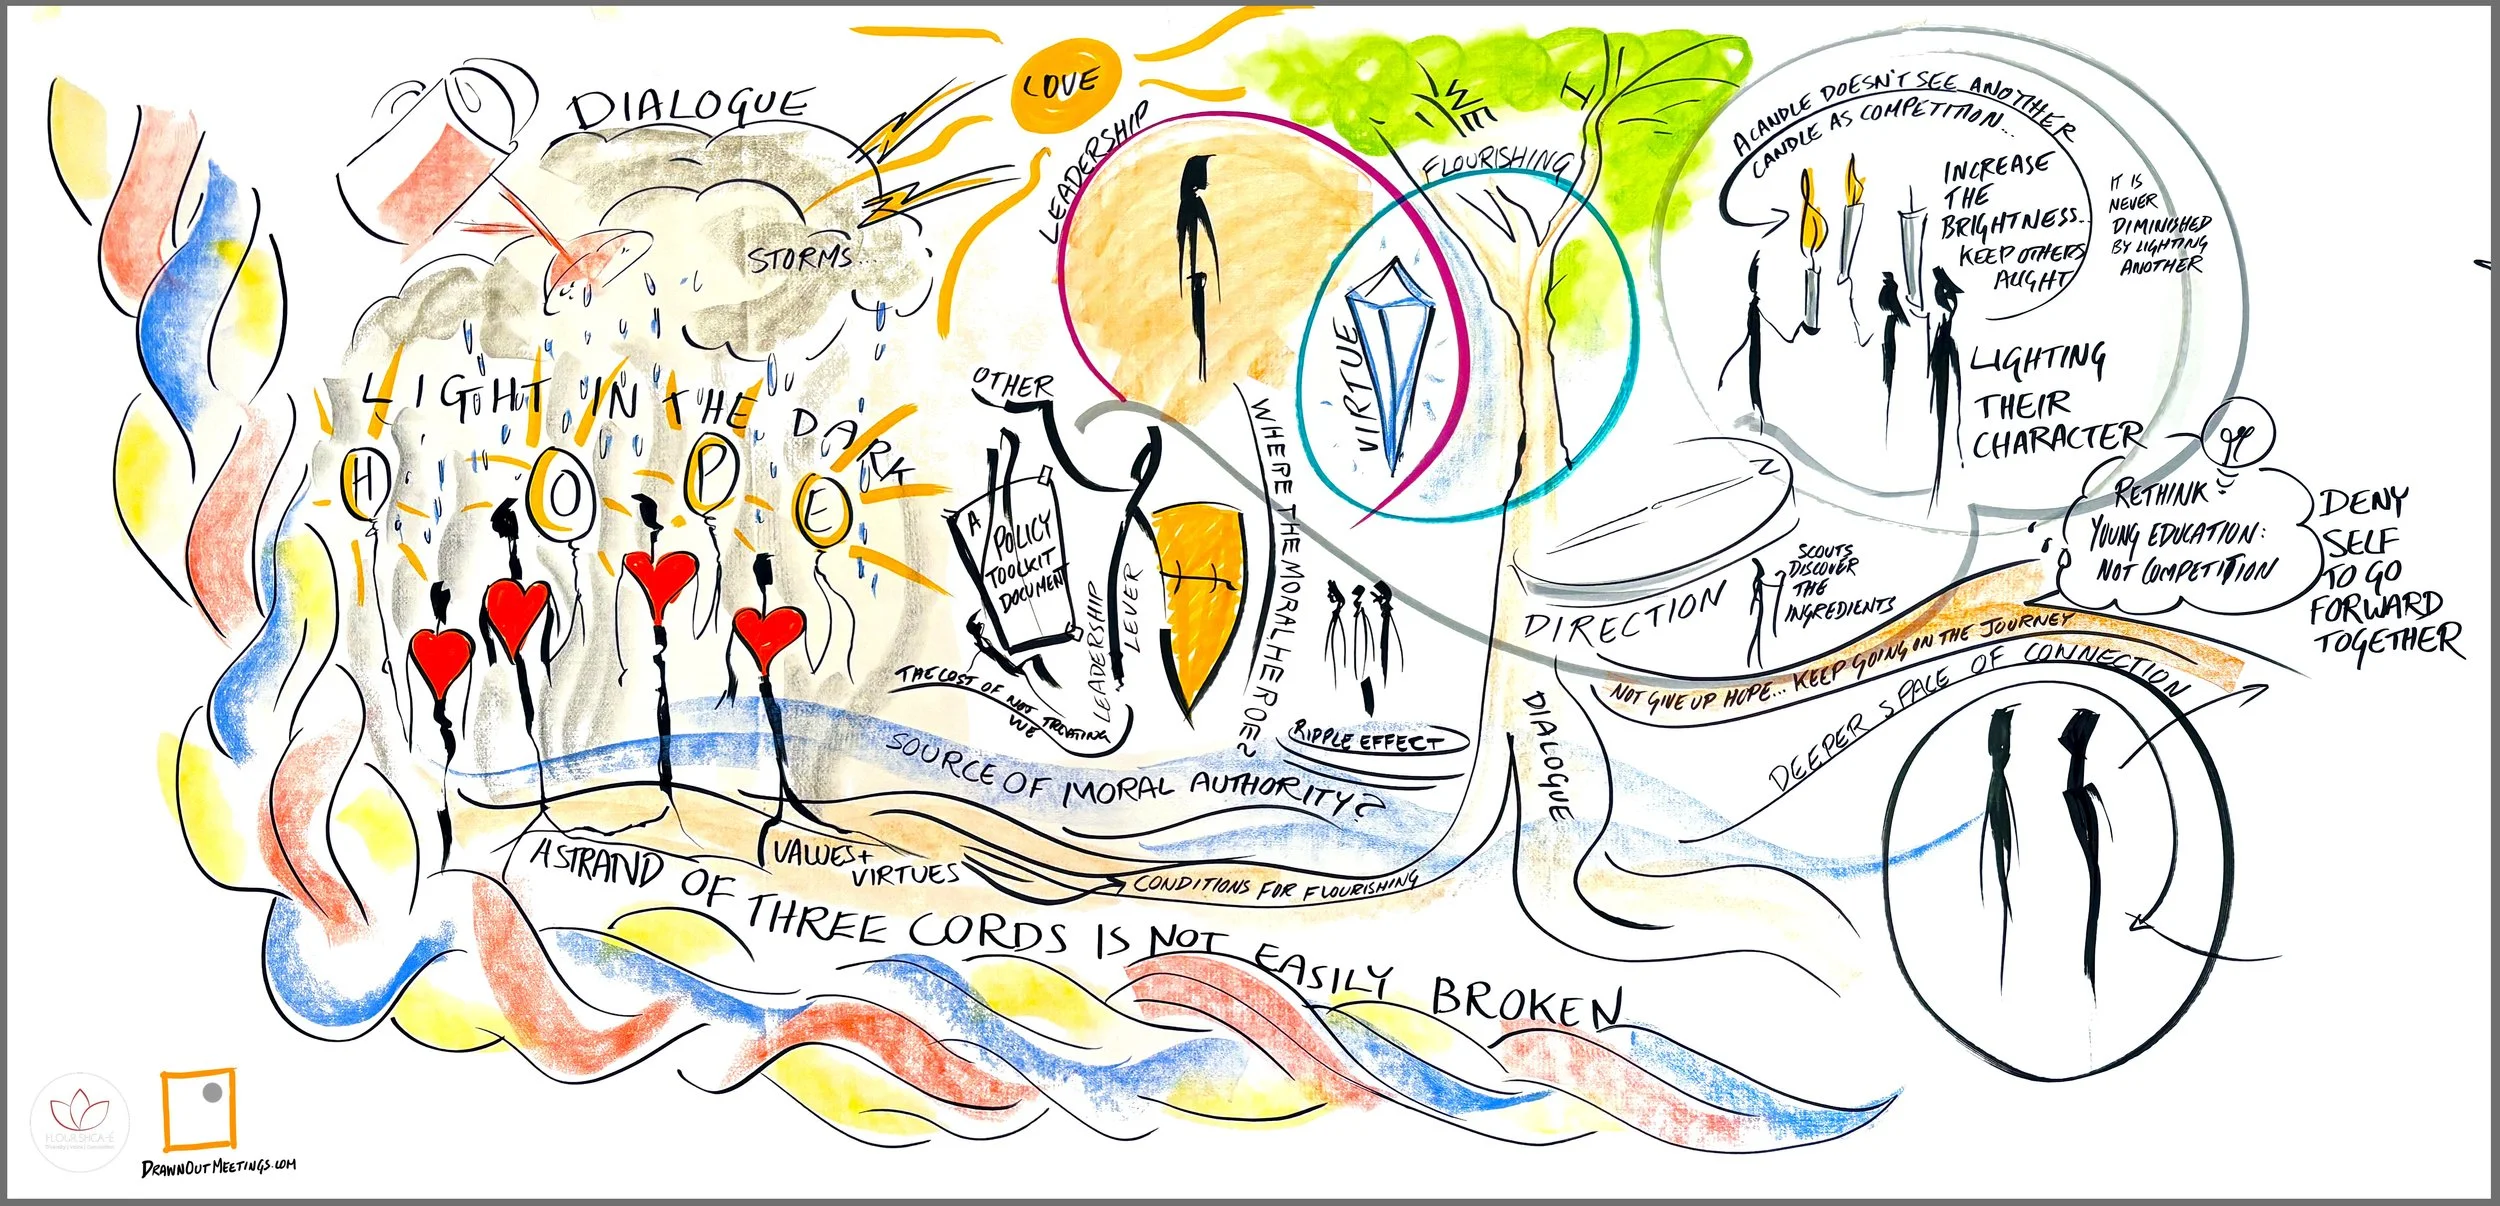 DIALOGUE
STORMS...
LOVE
LIGHT IN THE DARK
H
O
P
E
LEADERSHIP
WE
I
FLOURISHING
VIRTUE
A CANDLE DOESN'T SEE ANOTHER
CANDLE AS COMPETITION...
INCREASE
THE
BRIGHTNESS...
KEEP OTHERS
ALIGHT
IT IS
NEVER
DIMINISHED
BY LIGHTING
ANOTHER
LIGHTING
THEIR
CHARACTER
OTHER
A
POLICY
TOOLKIT
DOCUMENT
LEADERSHIP
LEVER
THE COST OF NOT TREATING
WE
WHERE THE MORAL HEROES?
RIPPLE EFFECT
N
DIRECTION
SCOUTS
DISCOVER
THE
INGREDIENTS
RETHINK
YOUNG EDUCATION:
NOT COMPETITION
DENY
SELF
TO GO
FORWARD
TOGETHER
NOT GIVE UP HOPE... KEEP GOING ON THE JOURNEY
DEEPER SPACE OF CONNECTION
DIALOGUE
SOURCE OF MORAL AUTHORITY?
VALUES +
VIRTUES
CONDITIONS FOR FLOURISHING
A STRAND OF THREE CORDS IS NOT EASILY BROKEN
DRAWNOUTMEETINGS.COM